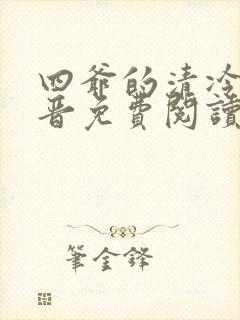 四爺的清冷
晉免費閱讀
筆金鋒